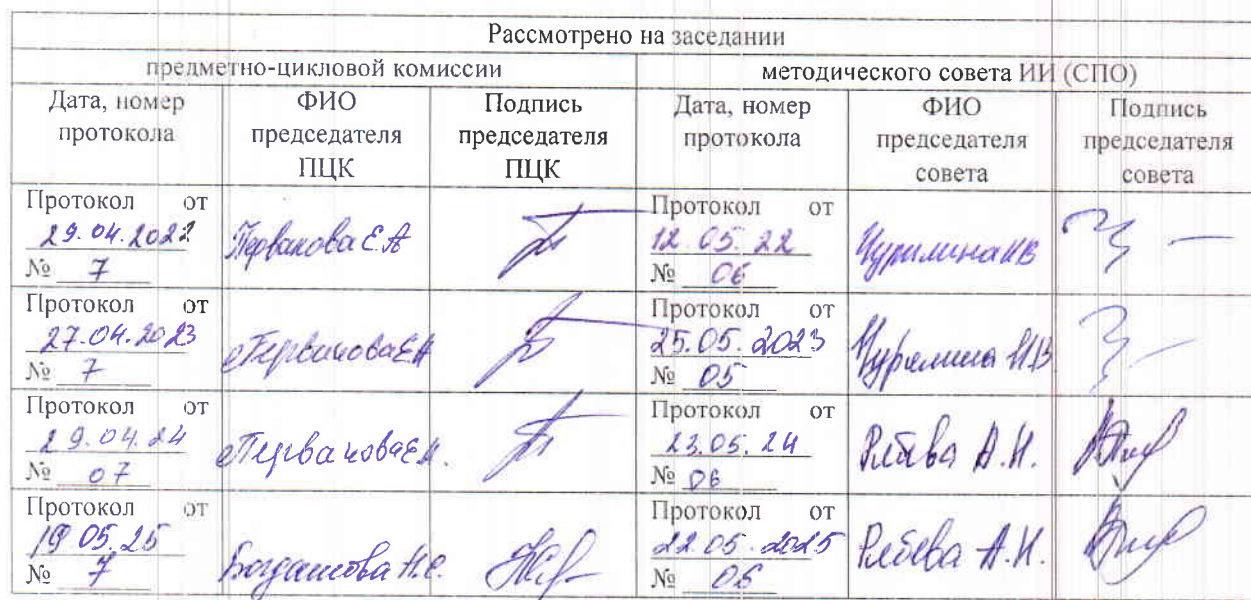 Рассмотрено на заседании
предметно-цикловой комиссии
методического совета ИИ (СПО)
Дата, номер протокола
ФИО председателя ПЦК
Подпись председателя ПЦК
Дата, номер протокола
ФИО председателя совета
Подпись председателя совета
Протокол от
29.04.2022
№ 7
Перванова Е.А
Протокол от
12.05.22
№ 06
Протокол от
27.04.2023
№ 7
Перванова Е.А
Протокол от
25.05.2023
№ 05
Протокол от
29.04.24
№ 07
Перванова Е.А.
Протокол от
23.05.24
№ 06
А.Н.
Протокол от
19 05.25
№ 7
Протокол от
22.05.2025
№
А.Н.